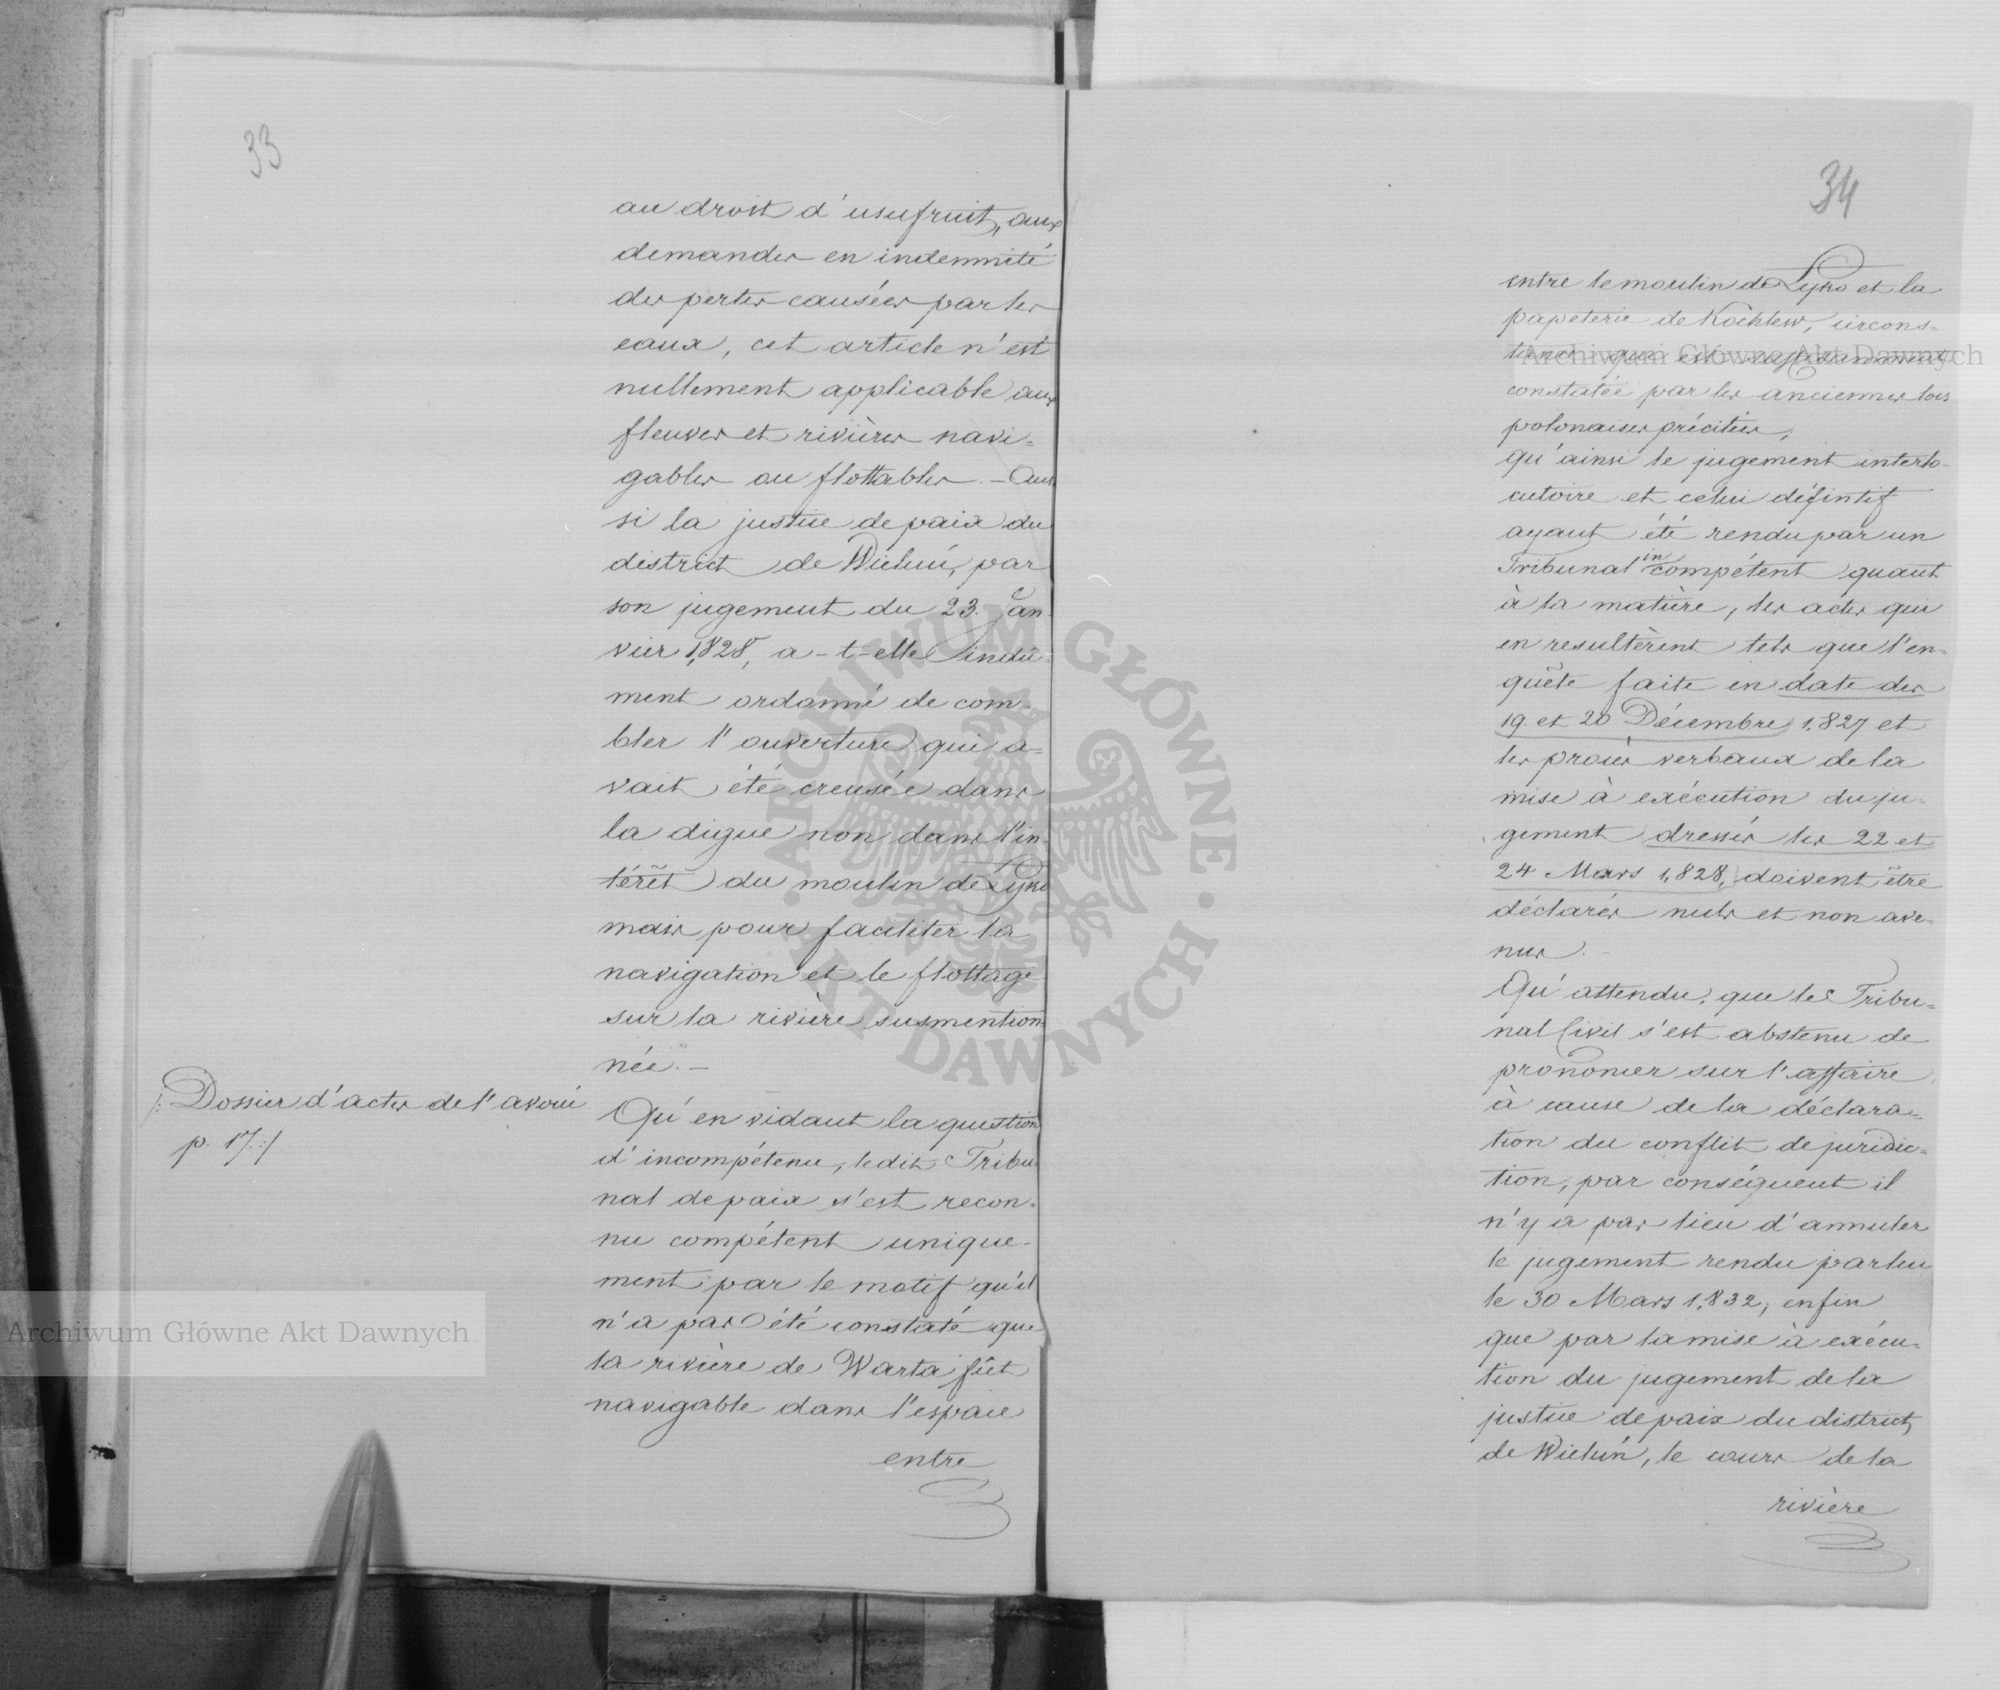 33
au droit d'usufruit, aux
demandes en indemnité
des pertes causées par les
eaux, cet article n'est
nullement applicable aux
fleuves et rivières navi=
gables ou flottables. — Aus
si la justice de paix du
district de Wieluń, par
son jugement du 23. Jan
vier 1,828, a-t-elle indû
ment ordonné de com-
bler l'ouverture qui a=
vait été creusée dans
la digue non dans l'in
térêt du moulin de Łyko
mais pour faciliter la
navigation et le flottage
sur la rivière susmention
née. —
/: Dossier d'actes de l'avoué
p. 17. :/
Qu'en vidant la question
d'incompétence, ledit Tribu
nal de paix s'est recon-
nu compétent unique-
ment par le motif qu'il
n'a pas été constaté que
la rivière de Warta fût
navigable dans l'espace
entre
34
entre le moulin de Łyko et la
papeterie de Kochlew, circons-
tance qui est
constatée par les anciennes lois
polonaises précitées,
qu'ainsi le jugement interlo-
cutoire et celui défintif
ayant été rendu par un
Tribunal incompétent quant
à la matière, les actes qui
en resultèrent tels que l'en=
quête faite en date des
19 et 20 Décembre 1,827 et
les procès verbaux de la
mise à exécution du ju-
gement dressés les 22 et
24 Mars 1,828, doivent être
déclarés nuls et non ave-
nus. -
Qu'attendu, que le Tribu=
nal Civil s'est abstenu de
prononcer sur l'affaire
à cause de la déclara=
tion du conflit de juridic=
tion, par conséquent il
n'y a pas lieu d'annuler
le jugement rendu par lui
le 30 Mars 1,832, enfin
que par la mise à exécu=
tion du jugement de la
justice de paix du district
de Wieluń, le cours de la
rivière
Archiwum Główne Akt Dawnych
Archiwum Główne Akt Dawnych
ARCHIWUM GŁÓWNE · AKT DAWNYCH ·